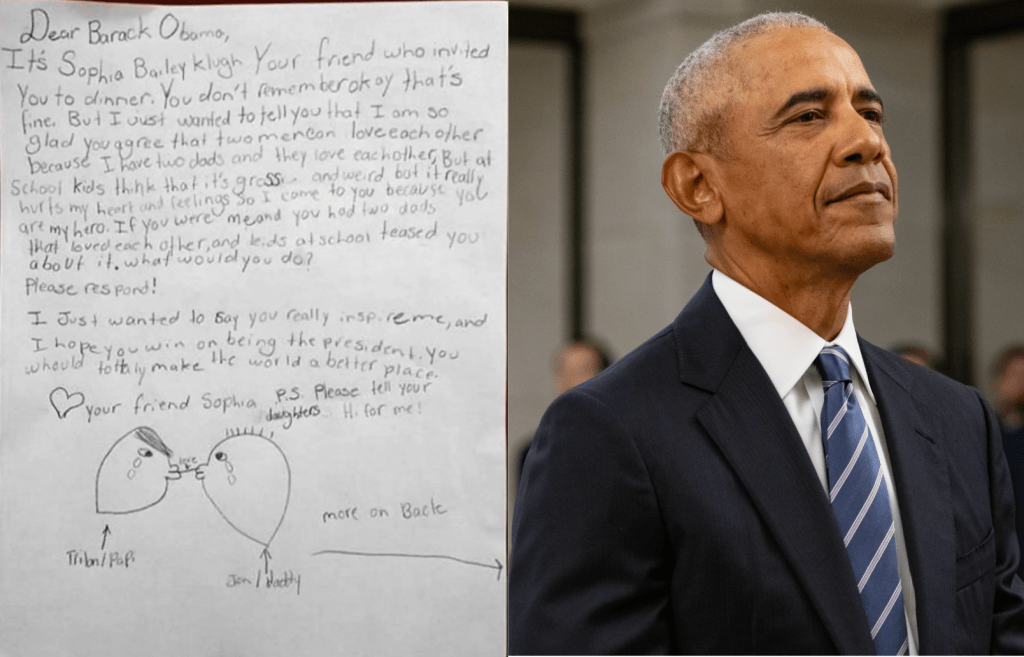 Dear Barack Obama,
It's Sophia Bailey Klugh Your friend who invited
You to dinner. You don't remember okay that's
fine. But I Just wanted to tell you that I am so
glad you agree that two men can love each other
because I have two dads and they love each other, But at
School kids think that it's gross and weird but it really
hurts my heart and feelings So I come to you because you
are my hero. If you were me and you had two dads
that loved each other, and kids at school teased you
about it. what would you do?
Please respond!
I Just wanted to say you really inspire me, and
I hope you win on being the president. you
whould totaly make the world a better place.
your friend Sophia
P.S. Please tell your
daughters Hi for me!
love
more on Back
Jon / Daddy